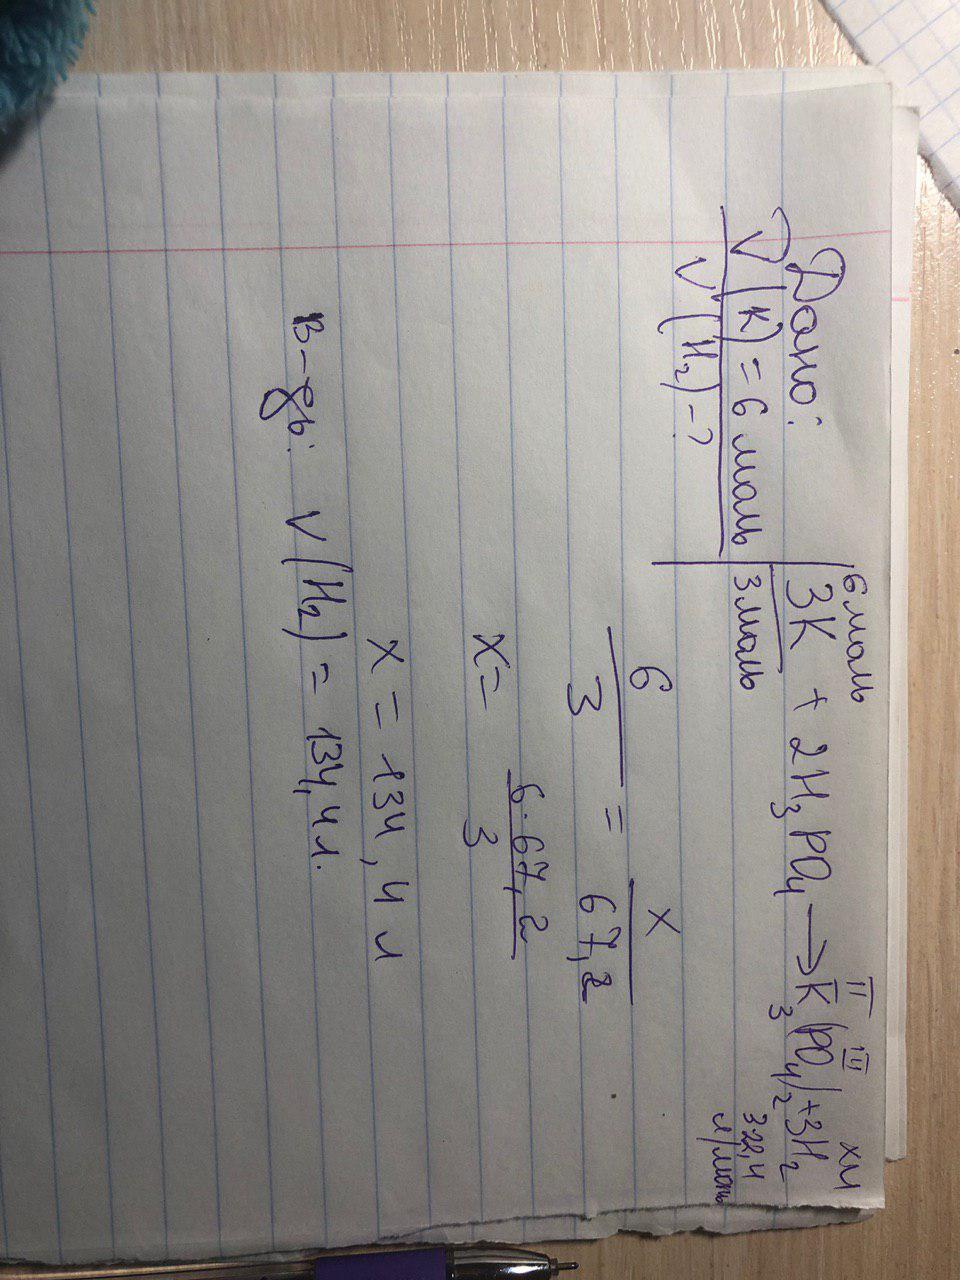 Дано:
V(K) = 6 моль
V(H₂) - ?
6 моль II III x л
3K + 2H₃PO₄ → K₃(PO₄)₂ + 3H₂
3 моль 3·22,4 л/моль
6/3 = x/67,2
x = 6·67,2/3
x = 134,4 л
В-дь: V(H₂) = 134,4 л.